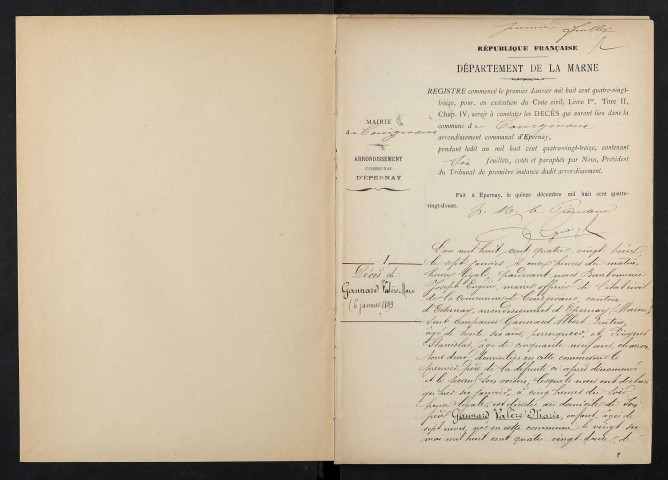 premier feuillet
RÉPUBLIQUE FRANÇAISE
DÉPARTEMENT DE LA MARNE
REGISTRE commencé le premier Janvier mil huit cent quatre-vingt-
treize, pour, en exécution du Code civil, Livre Ier, Titre II,
Chap. IV, servir à constater les DÉCÈS qui auront lieu dans la
commune d
arrondissement communal d'Epernay,
pendant ledit an mil huit cent quatre-vingt-treize, contenant
six feuillets, cotés et paraphés par Nous, Président
du Tribunal de première instance dudit arrondissement.
MAIRIE
ARRONDISSEMENT
COMMUNAL
D'EPERNAY
Fait à Epernay, le quinze décembre mil huit cent quatre-
vingt-douze.
1
Décès de
Gaunard Valère Marie
6 janvier 1893
L'an mil huit cent quatre vingt treize
le sept janvier à onze heures du matin
heure légale, pardevant nous Bonhomme
Joseph Eugène, maire officier de l'état civil
de la commune de canton
d'Esternay, arrondissement d'Epernay (Marne)
sont comparus Gaunard Albert
âgé de trente six ans, perruquier, et
Stanislas, âgé de cinquante neuf ans, charron
tous deux domiciliés en cette commune le
premier père de la défunte ci après dénommée
et le second son voisin, lesquels nous ont déclaré
que hier six janvier, à cinq heures du soir
heure légale, est décédée au domicile de son
père Gaunard Valère Marie, enfant âgée de
sept mois, née en cette commune le vingt six
mai mil huit cent quatre vingt douze, de